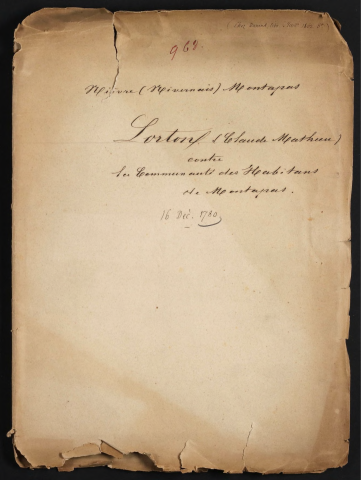 968.
Nièvre (Nivernais) Montapas
Lorton (Claude Mathieu)
contre
les Communauté des Habitans
de Montapas.
16 Déc. 1780